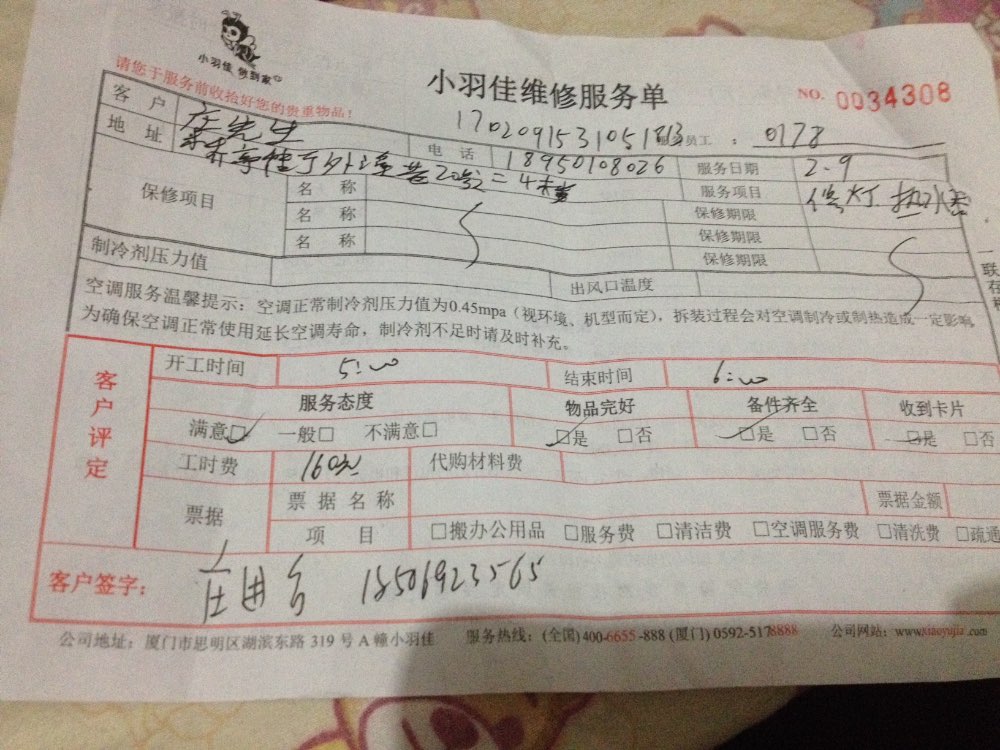 小羽佳 做到家
请您于服务前收拾好您的贵重物品!
小羽佳维修服务单
NO. 0034308
1702091531051813 服务员工: 0178
客户 庄先生 电话 18950108026 服务日期 2.9
地址 服务项目
保修项目 名称 保修期限
名称 保修期限
名称 保修期限
制冷剂压力值 出风口温度
空调服务温馨提示:空调正常制冷剂压力值为0.45mpa(视环境、机型而定),拆装过程会对空调制冷或制热造成一定影响,
为确保空调正常使用延长空调寿命,制冷剂不足时请及时补充。
联
在
客户评定
开工时间 5:00 结束时间 6:00
服务态度 物品完好 备件齐全 收到卡片
满意□ 一般□ 不满意□ □是 □否 □是 □否 □是 □否
工时费 160元 代购材料费
票据 票据名称 票据金额
项目 □搬办公用品 □服务费 □清洁费 □空调服务费 □清洗费 □疏通
客户签字: 18506923565
公司地址:厦门市思明区湖滨东路 319 号 A 幢小羽佳 服务热线:(全国)400-6655-888 (厦门)0592-5178888 公司网站:www.xiaoyujia.com